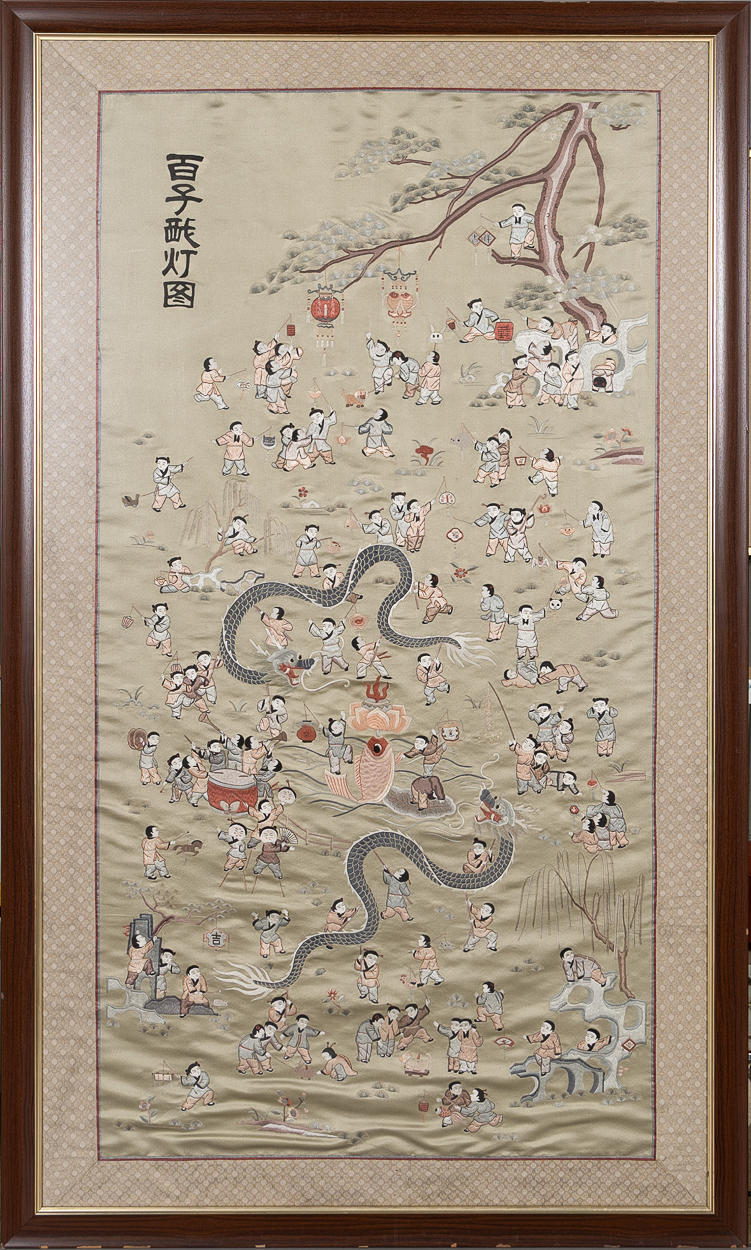 百子戲灯图
吉